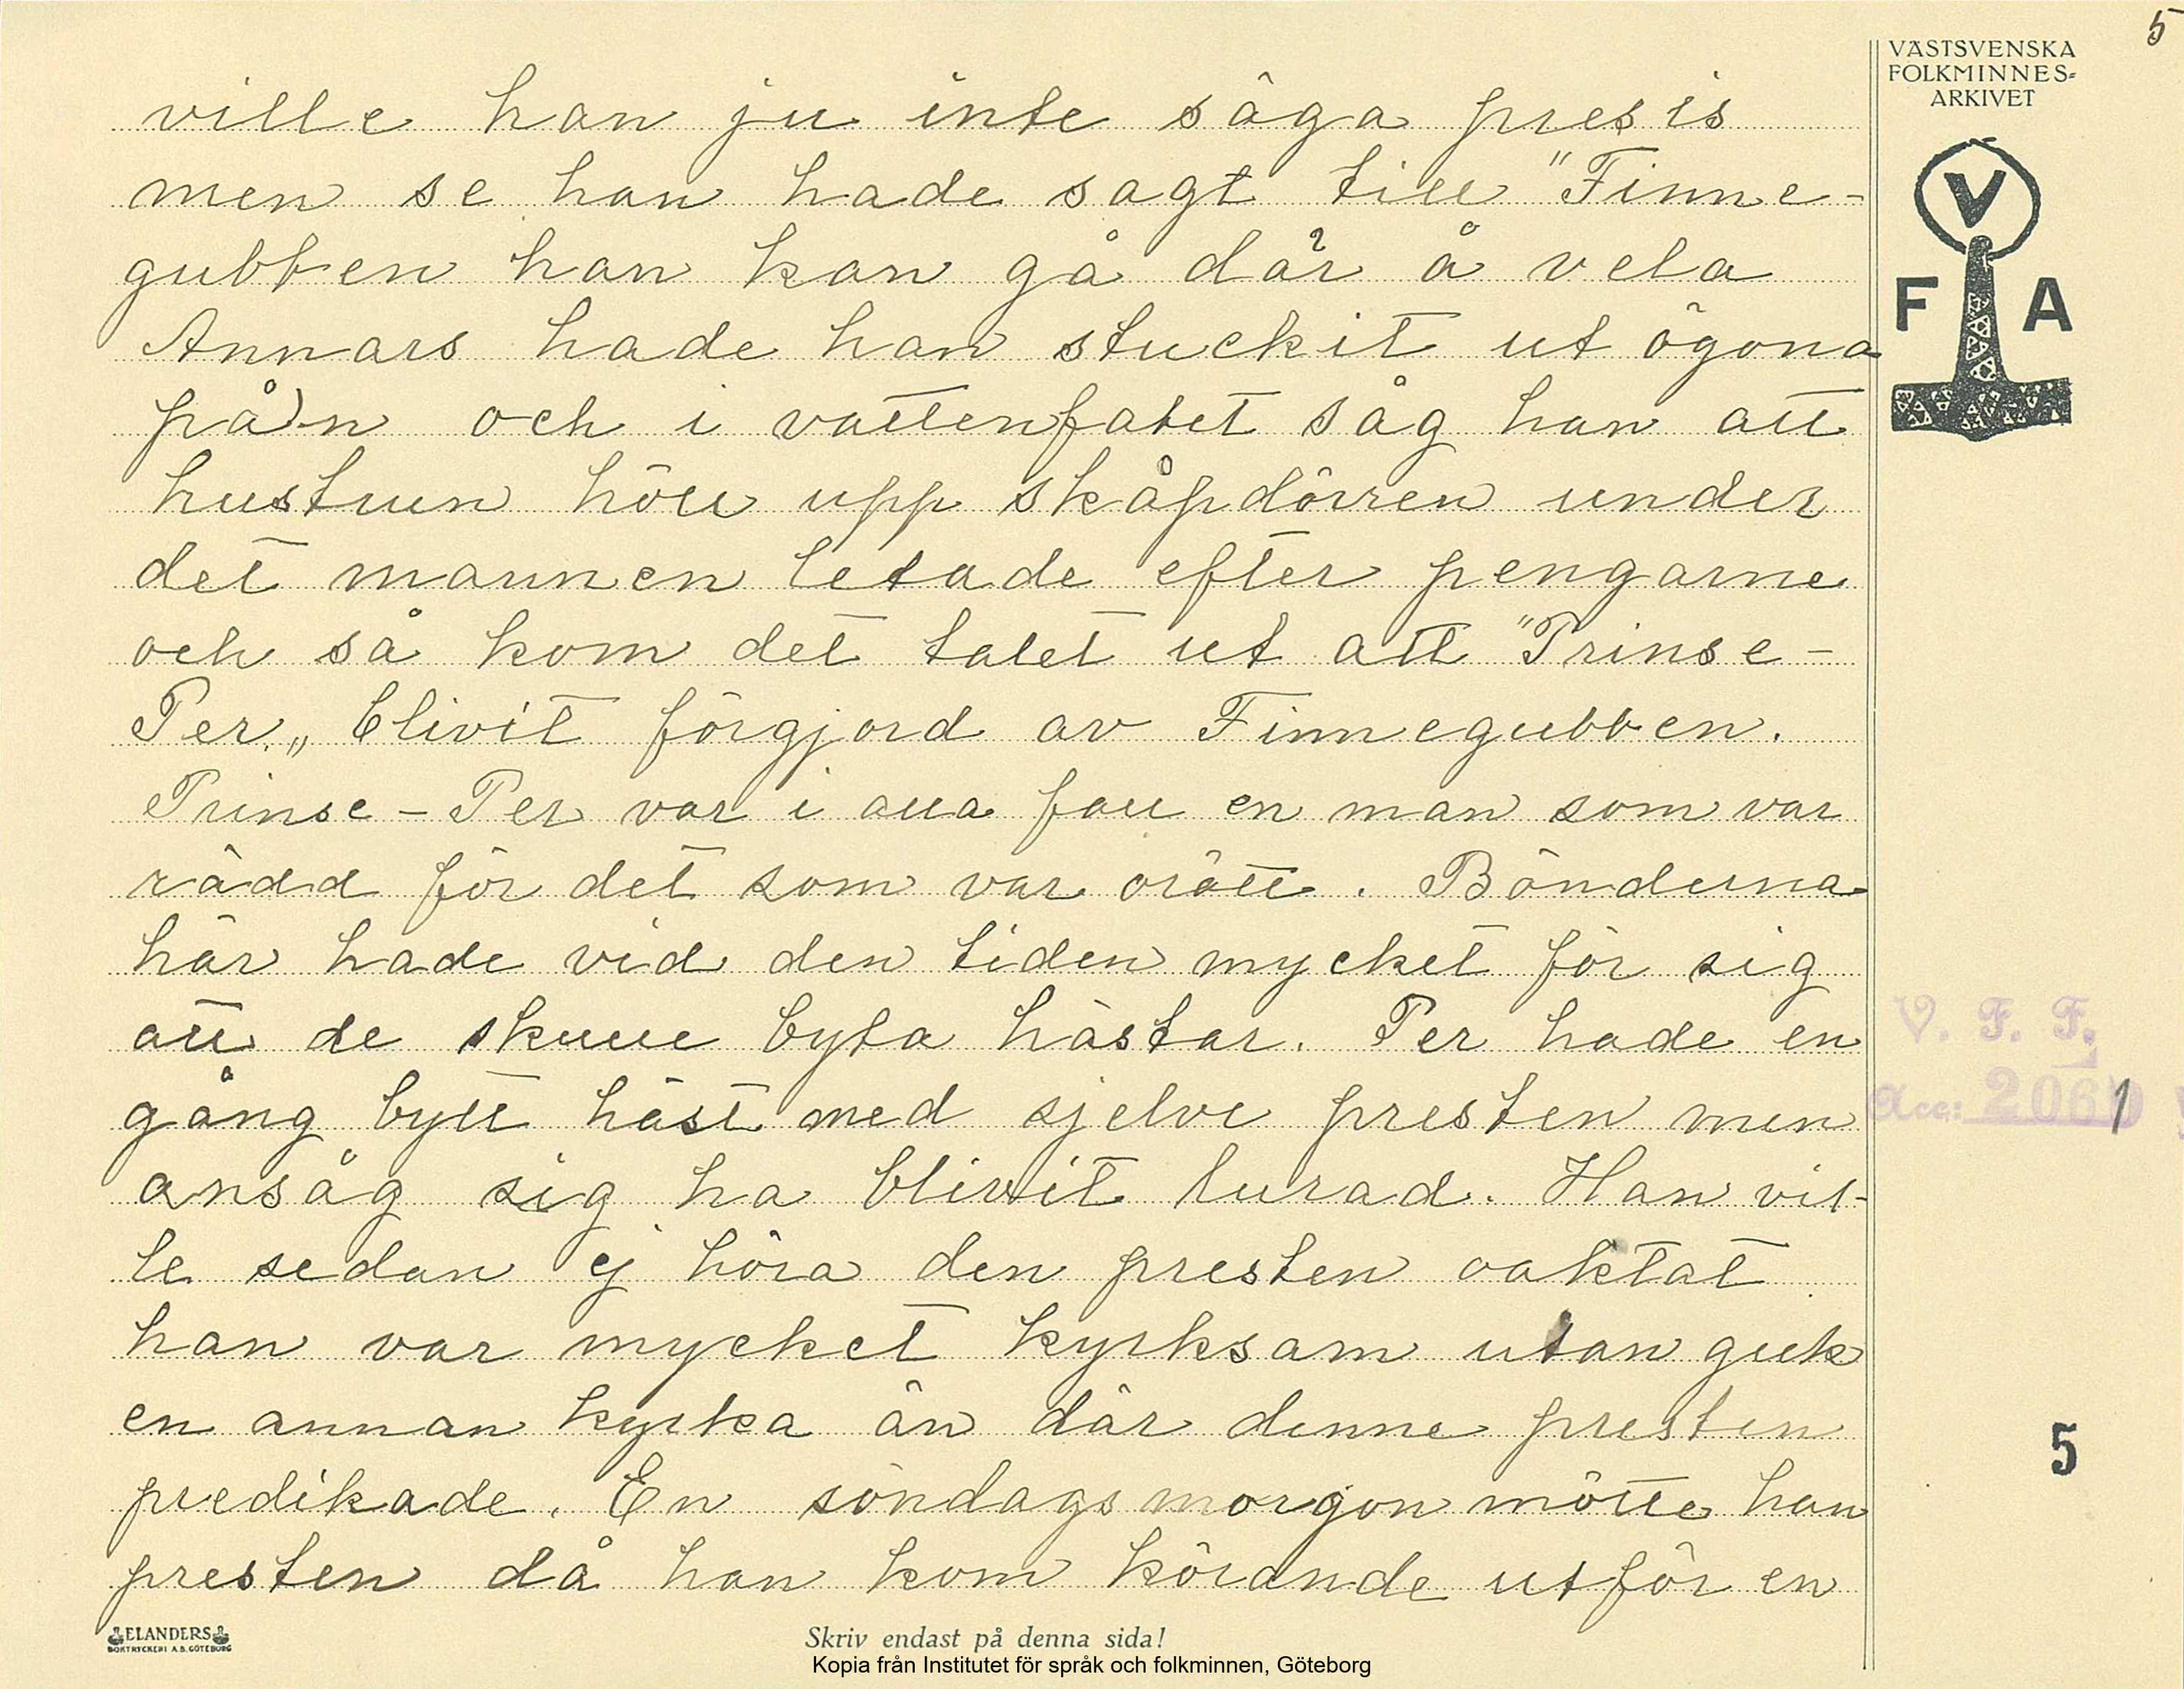 5
VÄSTSVENSKA
FOLKMINNES=
ARKIVET
V
F A
ville han ju inte säga presis
men se han hade sagt till "Finne-
gubben han kan gå där å vela
Annars hade han stuckit ut ögona
på'n och i vattenfatet såg han att
hustrun höll upp skåpdörren under
det mannen letade efter pengarne
och så kom det talet ut att "Prinse-
Per" blivit förgjord av Finnegubben.
Prinse-Per var i alla fall en man som var
rädd för det som var orätt. Bönderna
här hade vid den tiden mycket för sig
att de skulle byta hästar. Per hade en
gång bytt häst med sjelve presten men
ansåg sig ha blivit lurad. Han vil-
le sedan ej höra den presten oaktat
han var mycket kyrksam utan gick
en annan kyrka än där denne presten
predikade. En söndagsmorgon mötte han
presten då han kom körande utför en
V. F. F.
Acc: 2061
5
ELANDERS
BOKTRYCKERI A.B. GÖTEBORG
Skriv endast på denna sida!
Kopia från Institutet för språk och folkminnen, Göteborg